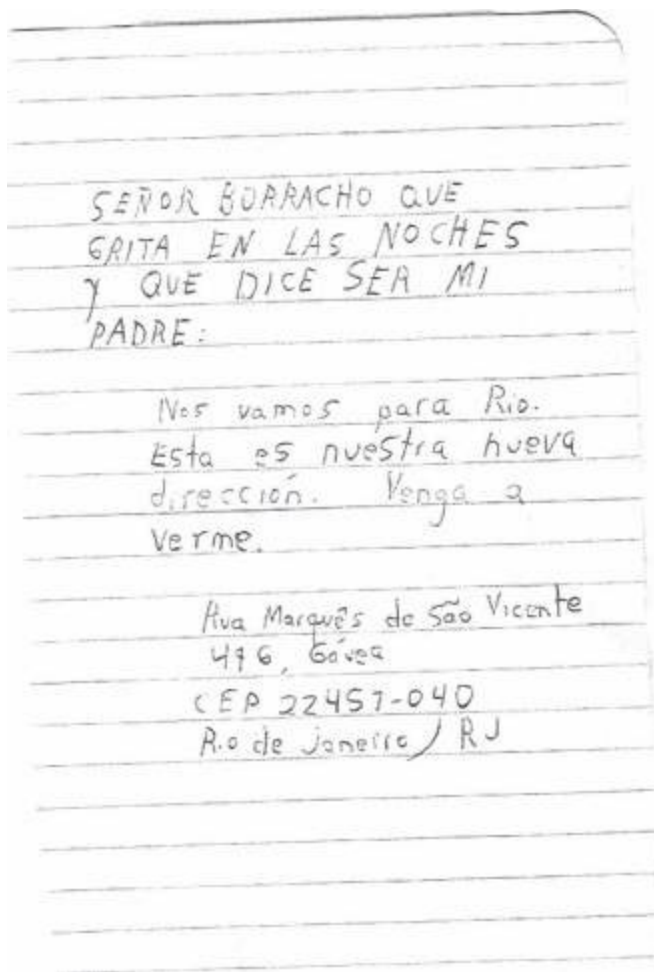 SEÑOR BORRACHO QUE
GRITA EN LAS NOCHES
Y QUE DICE SER MI
PADRE:
Nos vamos para Rio.
Esta es nuestra nueva
dirección. Venga a
verme.
Rua Marquês de São Vicente
496, Gávea
CEP 22451-040
Rio de Janeiro / RJ